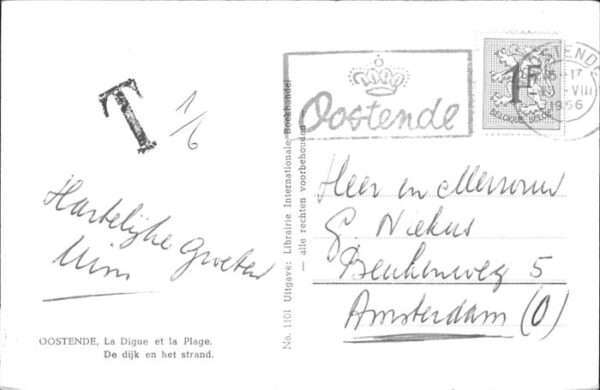 T
1/6
Hartelijke Groeten
Wim
OOSTENDE, La Digue et la Plage.
De dijk en het strand.
No. 1101 Uitgave: Librairie Internationale Boekhandel
— alle rechten voorbehouden —
Oostende
1F
BELGIQUE-BELGIE
OSTENDE
VIII
1956
Heer en Mevrouw
G. Niekus
Beukenweg 5
Amsterdam (O)